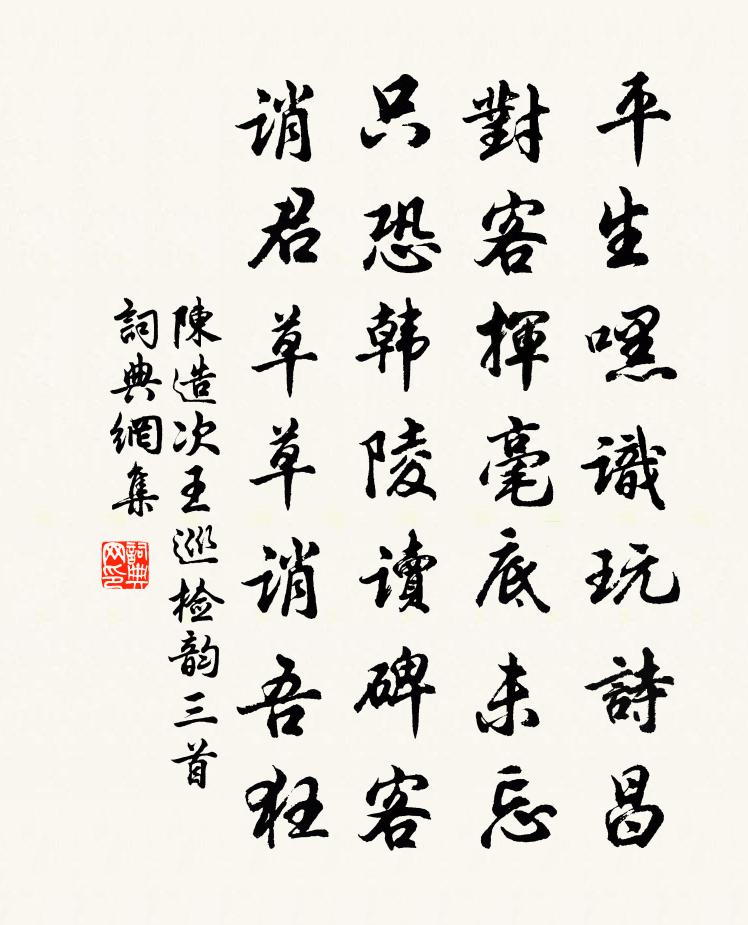 平生嘿識玩詩昌
對客揮毫底未忘
只恐韩陵讀碑客
誚君草草誚吾狂
陳造次王巡检韵三首
詞典網集
詞典网印